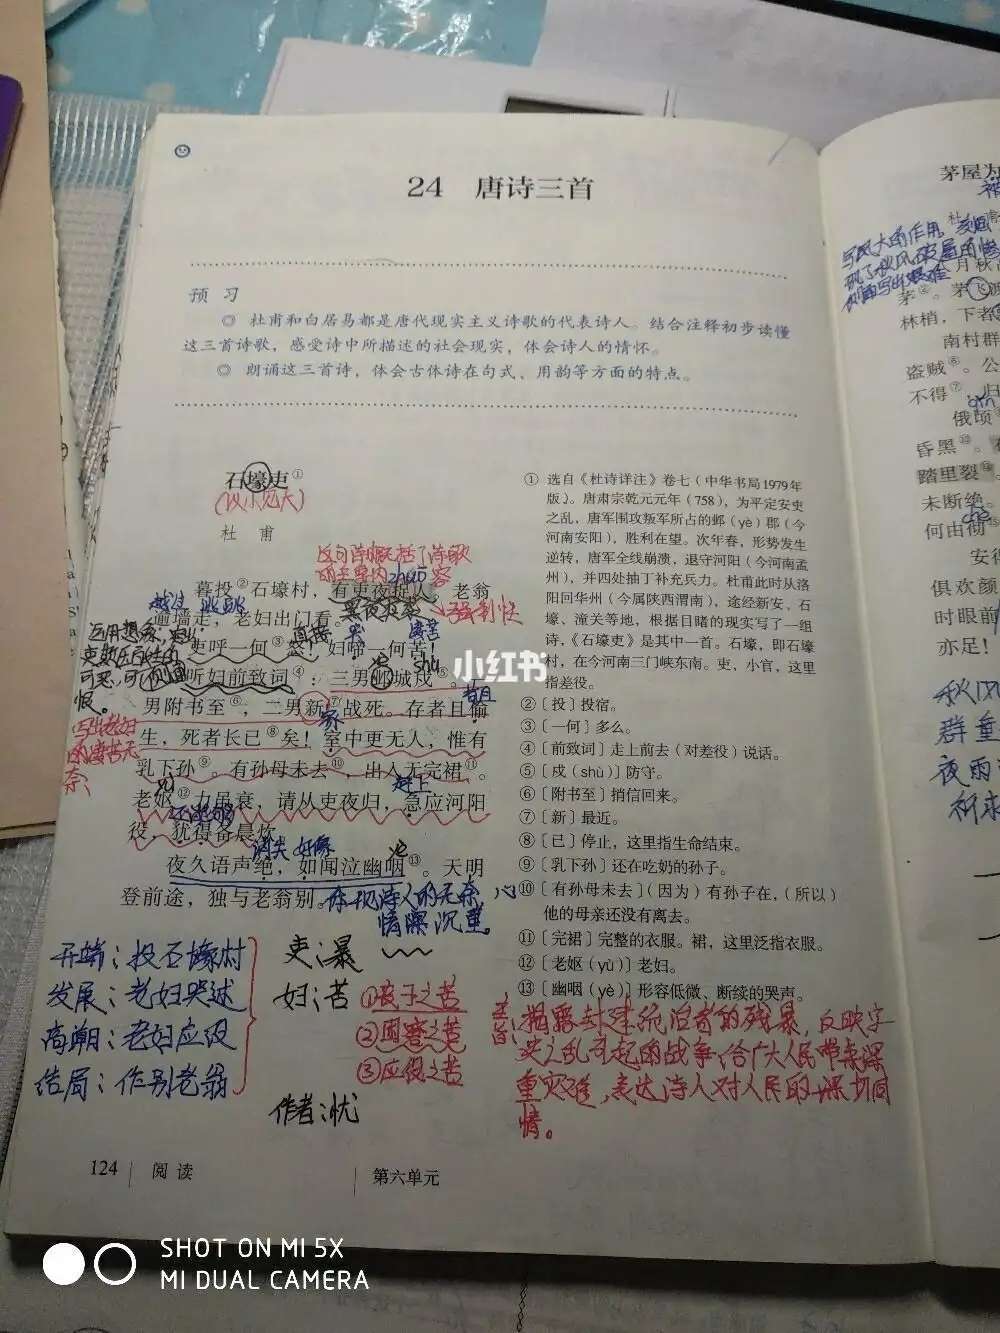 24 唐诗三首
预 习
◎ 杜甫和白居易都是唐代现实主义诗歌的代表诗人。结合注释初步读懂
这三首诗歌，感受诗中所描述的社会现实，体会诗人的情怀。
◎ 朗诵这三首诗，体会古体诗在句式、用韵等方面的特点。
石壕吏①
(以小见大)
杜 甫
这句诗概括了诗歌
的主要内容
zhuō
暮投②石壕村，有吏夜捉人。老翁
越过 逃跑
黑夜
强制
逾墙走，老妇出门看。
吏呼一何③怒！妇啼一何苦！
凄苦
shù
听妇前致词④：三男邺城戍⑤。
苟且
男附书至⑥，二男新⑦战死。存者且偷
家
生，死者长已⑧矣！室中更无人，惟有
写出老妇
的凄苦无
奈
乳下孙⑨。有孙母未去⑩，出入无完裙⑪。
赶上
老妪⑫力虽衰，请从吏夜归，急应河阳
还能够
役，犹得备晨炊。
消失 好像
夜久语声绝，如闻泣幽咽⑬。天明
登前途，独与老翁别。
体现诗人的无奈，心
情 沉重。
开端：投石壕村
发展：老妇哭述
高潮：老妇应役
结局：作别老翁
吏：暴
妇：苦
①孩子之苦
②困窘之苦
③应役之苦
作者：忧
① 选自《杜诗详注》卷七（中华书局1979年
版）。唐肃宗乾元元年（758），为平定安史
之乱，唐军围攻叛军所占的邺（yè）郡（今
河南安阳），胜利在望。次年春，形势发生
逆转，唐军全线崩溃，退守河阳（今河南孟
州），并四处抽丁补充兵力。杜甫此时从洛
阳回华州（今属陕西渭南），途经新安、石
壕、潼关等地，根据目睹的现实写了一组
诗，《石壕吏》是其中一首。石壕，即石壕
村，在今河南三门峡东南。吏，小官，这里
指差役。
②〔投〕投宿。
③〔一何〕多么。
④〔前致词〕走上前去（对差役）说话。
⑤〔戍（shù）〕防守。
⑥〔附书至〕捎信回来。
⑦〔新〕最近。
⑧〔已〕停止，这里指生命结束。
⑨〔乳下孙〕还在吃奶的孙子。
⑩〔有孙母未去〕（因为）有孙子在，（所以）
他的母亲还没有离去。
⑪〔完裙〕完整的衣服。裙，这里泛指衣服。
⑫〔老妪（yù）〕老妇。
⑬〔幽咽（yè）〕形容低微、断续的哭声。
主旨：揭露封建统治者的残暴，反映安
史之乱引起的战争给广大人民带来深
重灾难，表达诗人对人民的深切同
情。
124 阅 读
第六单元
茅屋为
月秋
茅②。茅飞渡
林梢，下者
南村群
盗贼⑥。公
不得⑦，归
俄顷
昏黑⑩。
踏里裂
未断绝。
何由彻
安得
俱欢颜
时眼前
亦足！
群重
夜雨
祈求
小红书
SHOT ON MI 5X
MI DUAL CAMERA